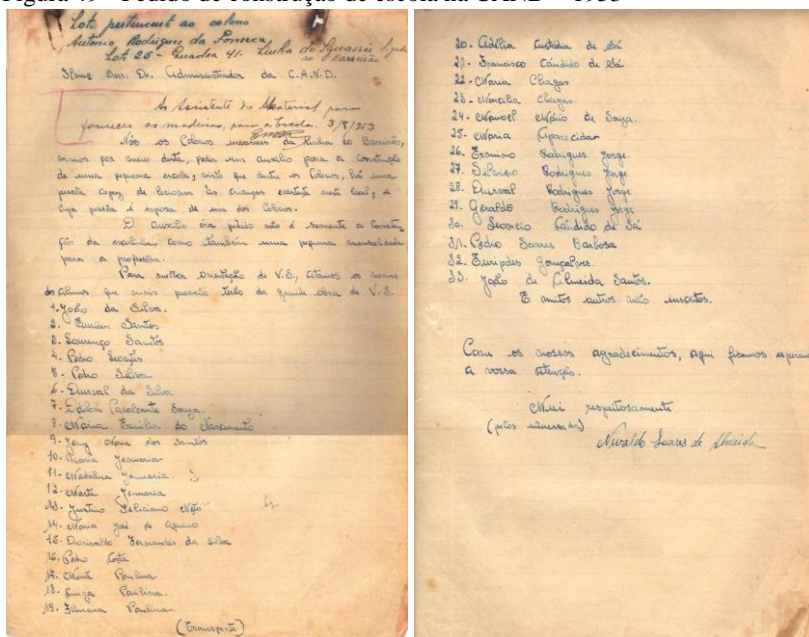 Figura 49 - Pedido de construção de escola na CAND – 1953
Lote pertencente ao colono
Antonio Rodrigues da Fonseca
Lote 25 - Quadra 41. Linha do
Ilmo Snr. Dr. Administrador da C.A.N.D.
Ao Assistente do Material para
fornecer as madeiras, para a Escola. 3/8/953
Nós os Colonos moradores da Linha do Barreirão,
vimos por meio desta, pedir um auxilio para a Construção
de uma pequena escola, visto que dentre os Colonos, há uma
pessôa capaz de lecionar às Crianças existente neste local, e
cuja pessôa é esposa de um dos Colonos.
O auxilio ora pedido não é somente a Constru-
ção da escolinha como também uma pequena mensalidade
para a professôra.
Para melhor orientação de V.S., citamos os nomes
dos alunos que mais da grande obra de V.S.
1. João da Silva.
2. Eurides Santos
3. Lourenço Santos
4. Pedro
5. Pedro Silva
6. Durval da Silva
7. Edilson Cavalcante Souza.
8. Maria Emilia do Nascimento
9. Maria dos Santos
10. Maria Jenuaria
11. Madalena Jenuaria.
12. Marta Jenuaria
13. Justino Feliciano Neto
14. Maria José de Aquino
15. Dorivaldo Fernandes da Silva
16. Pedro Costa
17. Paulina
18. Luiza Paulina.
19. Paulina.
(Transporte)
20. Adélia Custódia de Sá
21. Francisco Cândido de Sá
22. Maria Chagas
23. Marcilia Chagas.
24. Manoel Mário de Souza.
25. Maria Aparecida
26. Ermino Rodrigues Jorge.
27. Silvino Rodrigues Jorge
28. Durval Rodrigues Jorge
29. Geraldo Rodrigues Jorge
30. Leoncio Cândido de Sá
31. Pedro Soares Barbosa
32. Euripdes Gonçalves.
33. João de Almeida Santos.
E muitos outros não inscritos.
Com os nossos agradicimentos, aqui ficamos
a vossa atenção.
Mui respeitosamente
(pelos interessados)
Nivaldo Soares de Almeida